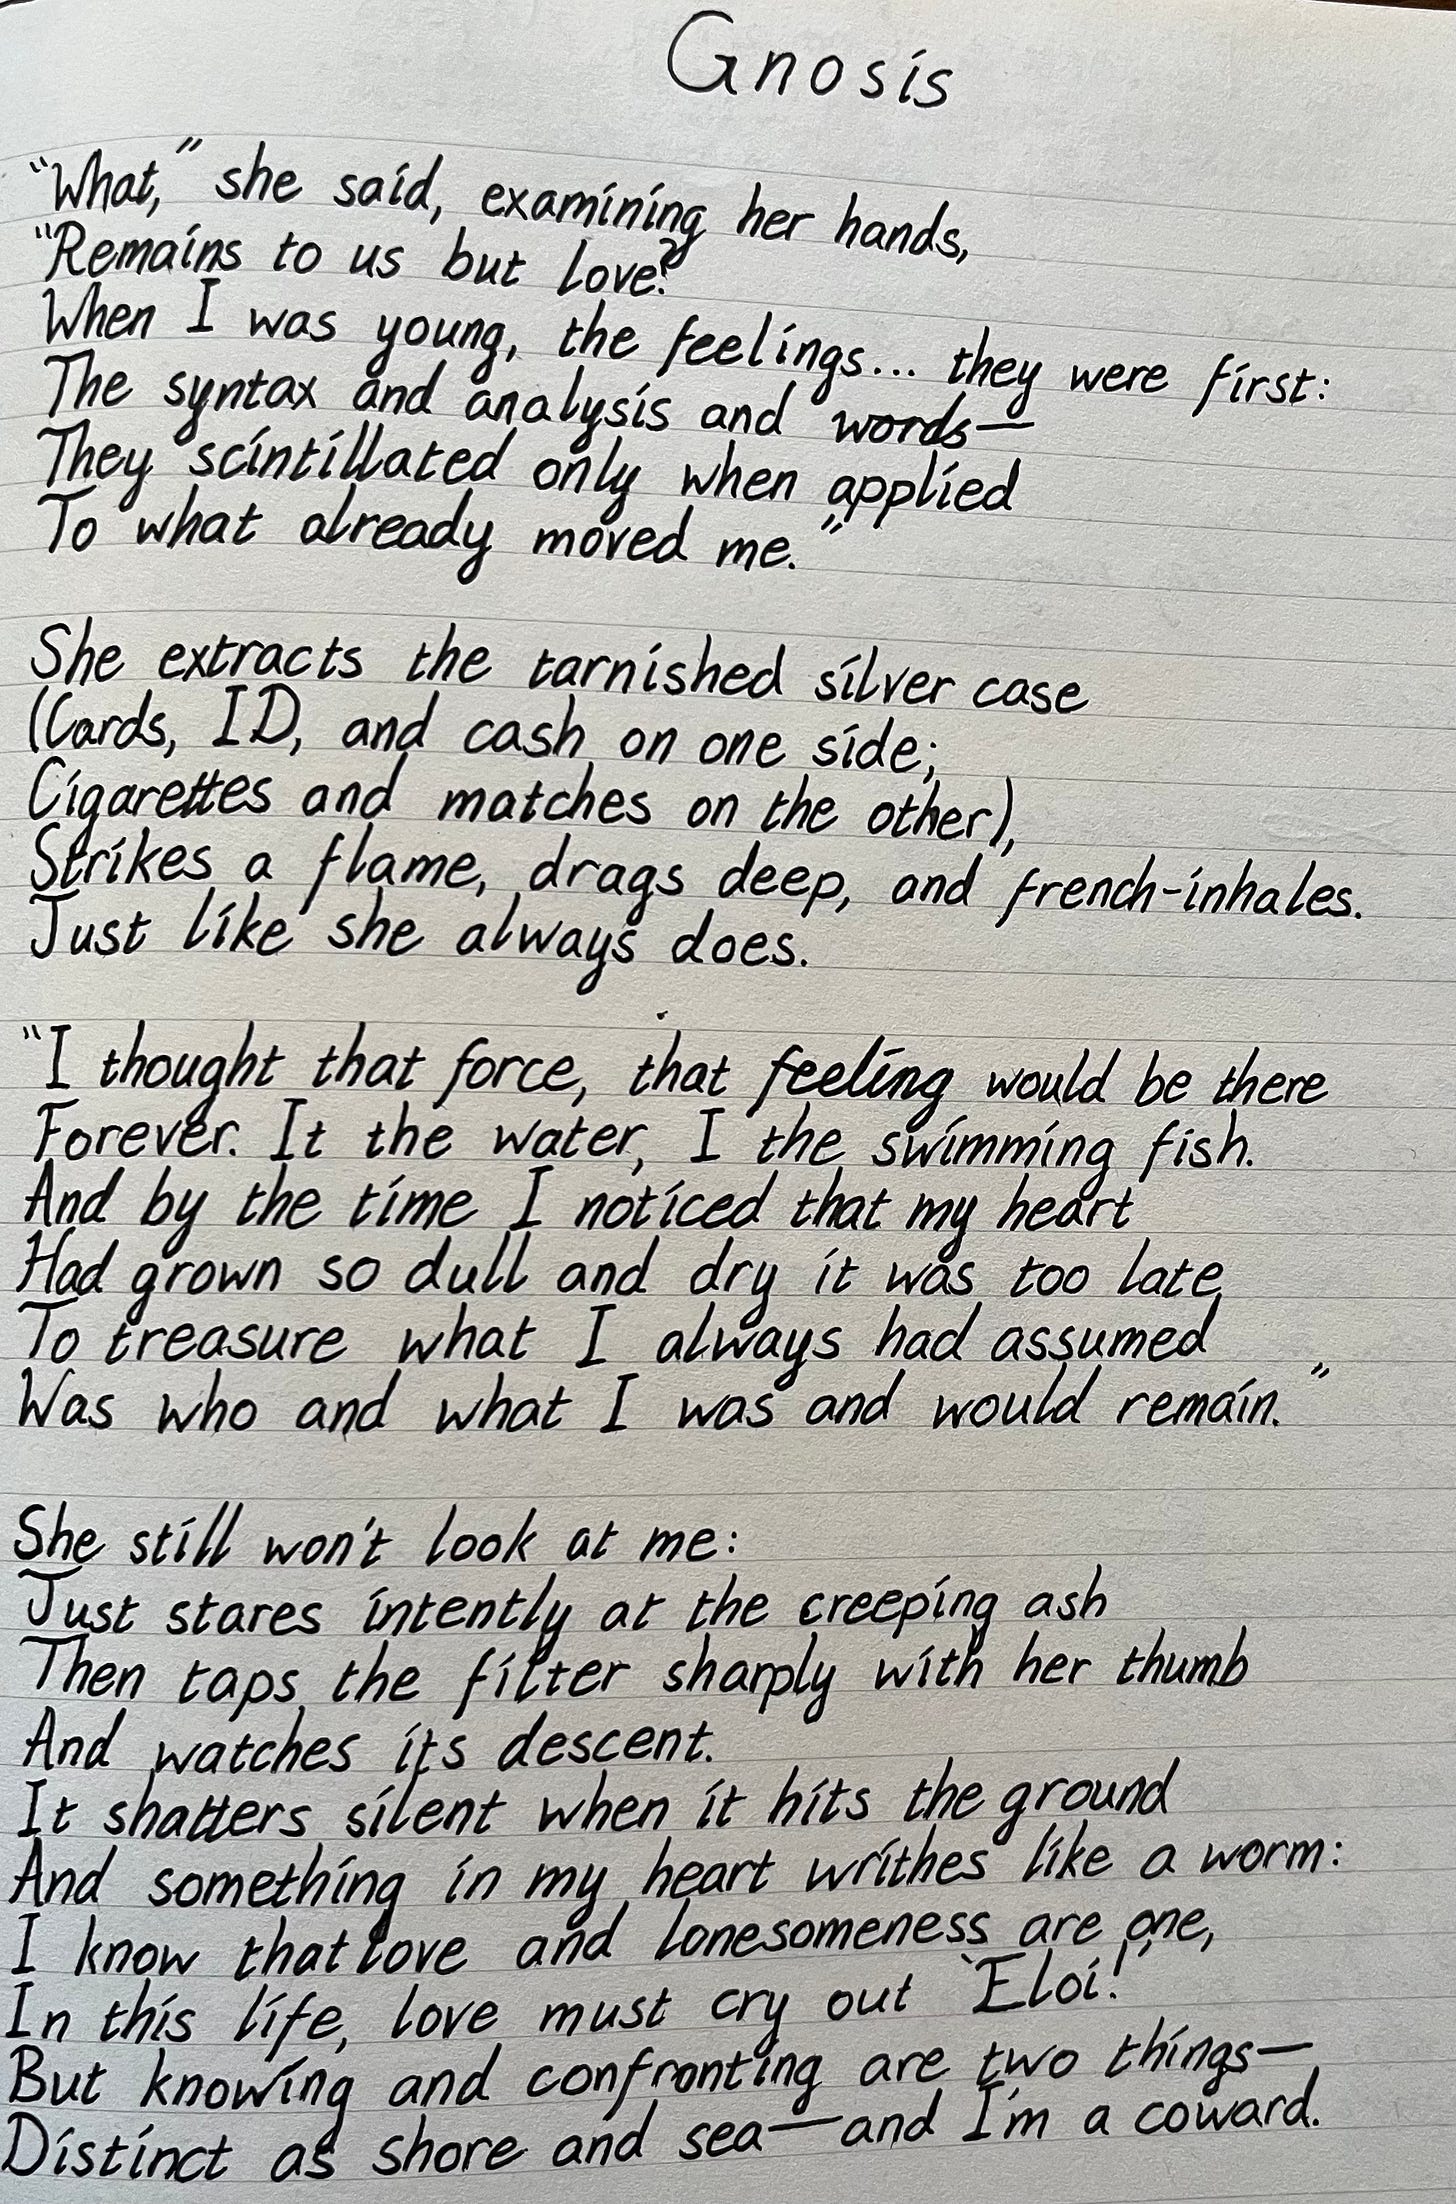 Gnosis
“What,” she said, examining her hands,
“Remains to us but love?
When I was young, the feelings... they were first:
The syntax and analysis and words—
They scintillated only when applied
To what already moved me.”
She extracts the tarnished silver case
(Cards, ID, and cash on one side;
Cigarettes and matches on the other),
Strikes a flame, drags deep, and french-inhales.
Just like she always does.
“I thought that force, that feeling would be there
Forever. It the water, I the swimming fish.
And by the time I noticed that my heart
Had grown so dull and dry it was too late
To treasure what I always had assumed
Was who and what I was and would remain.”
She still won't look at me:
Just stares intently at the creeping ash
Then taps the filter sharply with her thumb
And watches its descent.
It shatters silent when it hits the ground
And something in my heart writhes like a worm:
I know that love and lonesomeness are one,
In this life, love must cry out “Eloi!”
But knowing and confronting are two things—
Distinct as shore and sea—and I'm a coward.